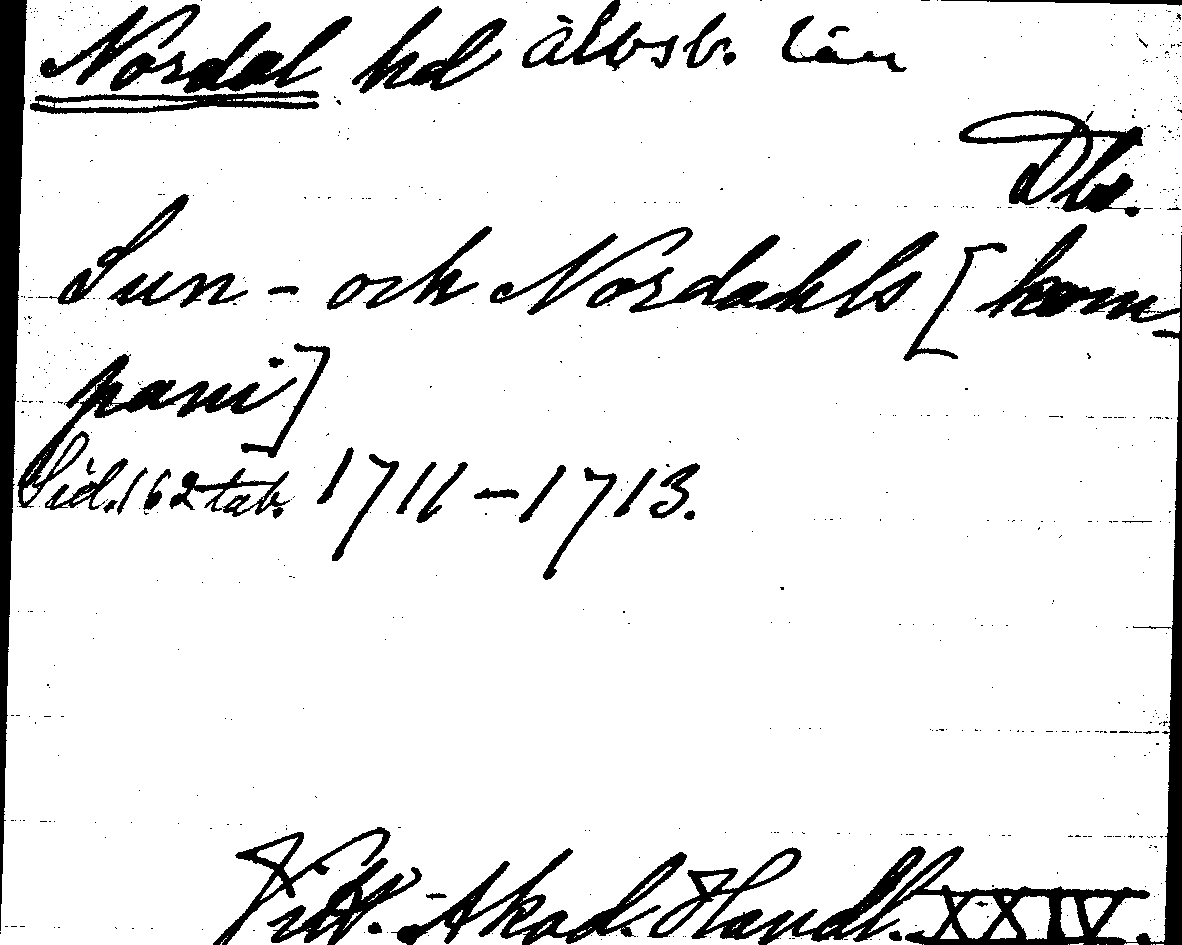 Nordal hd Älvsb. län
Dls.
Sun- och Nordahls [kom-
pani]
Sid. 162 tab. 1711–1713.
Vitt. Akad. Handl. XXIV.